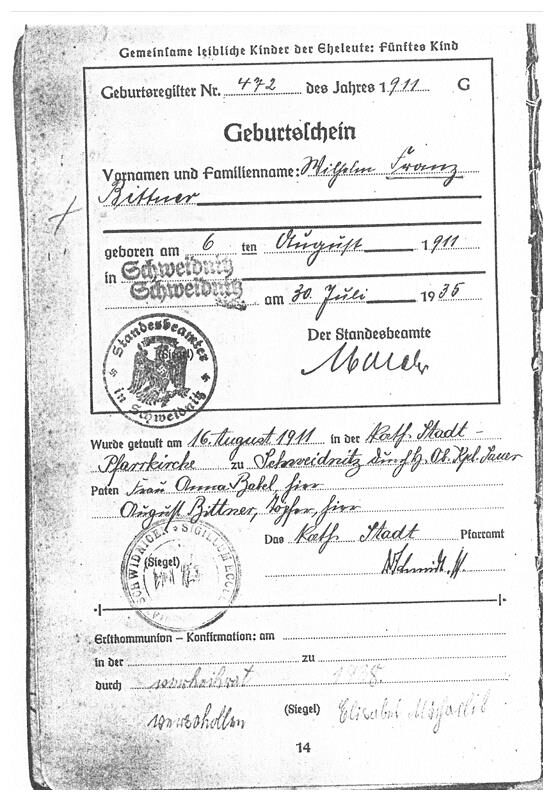 Gemeinsame leibliche Kinder der Eheleute: Fünftes Kind
Geburtsregister Nr. 472 des Jahres 1911 G
Geburtsschein
Vornamen und Familienname: Wilhelm Franz
Bittner
geboren am 6 ten August 1911
in Schweidnitz
Schweidnitz am 30. Juli 1935
Der Standesbeamte
Standesbeamter
(Siegel)
in Schweidnitz
Wurde getauft am 16. August 1911 in der Kath. Stadt-
Pfarrkirche zu Schweidnitz durch H. Ob. Kpl.
Paten Frau Anna Babel, hier
August Bittner, Töpfer, hier
Das Kath. Stadt Pfarramt
SIGILLUM ECCL.
(Siegel)
Schmidt.
Erstkommunion – Konfirmation: am
in der zu
durch verheirat
verschollen (Siegel) Elisabet
14